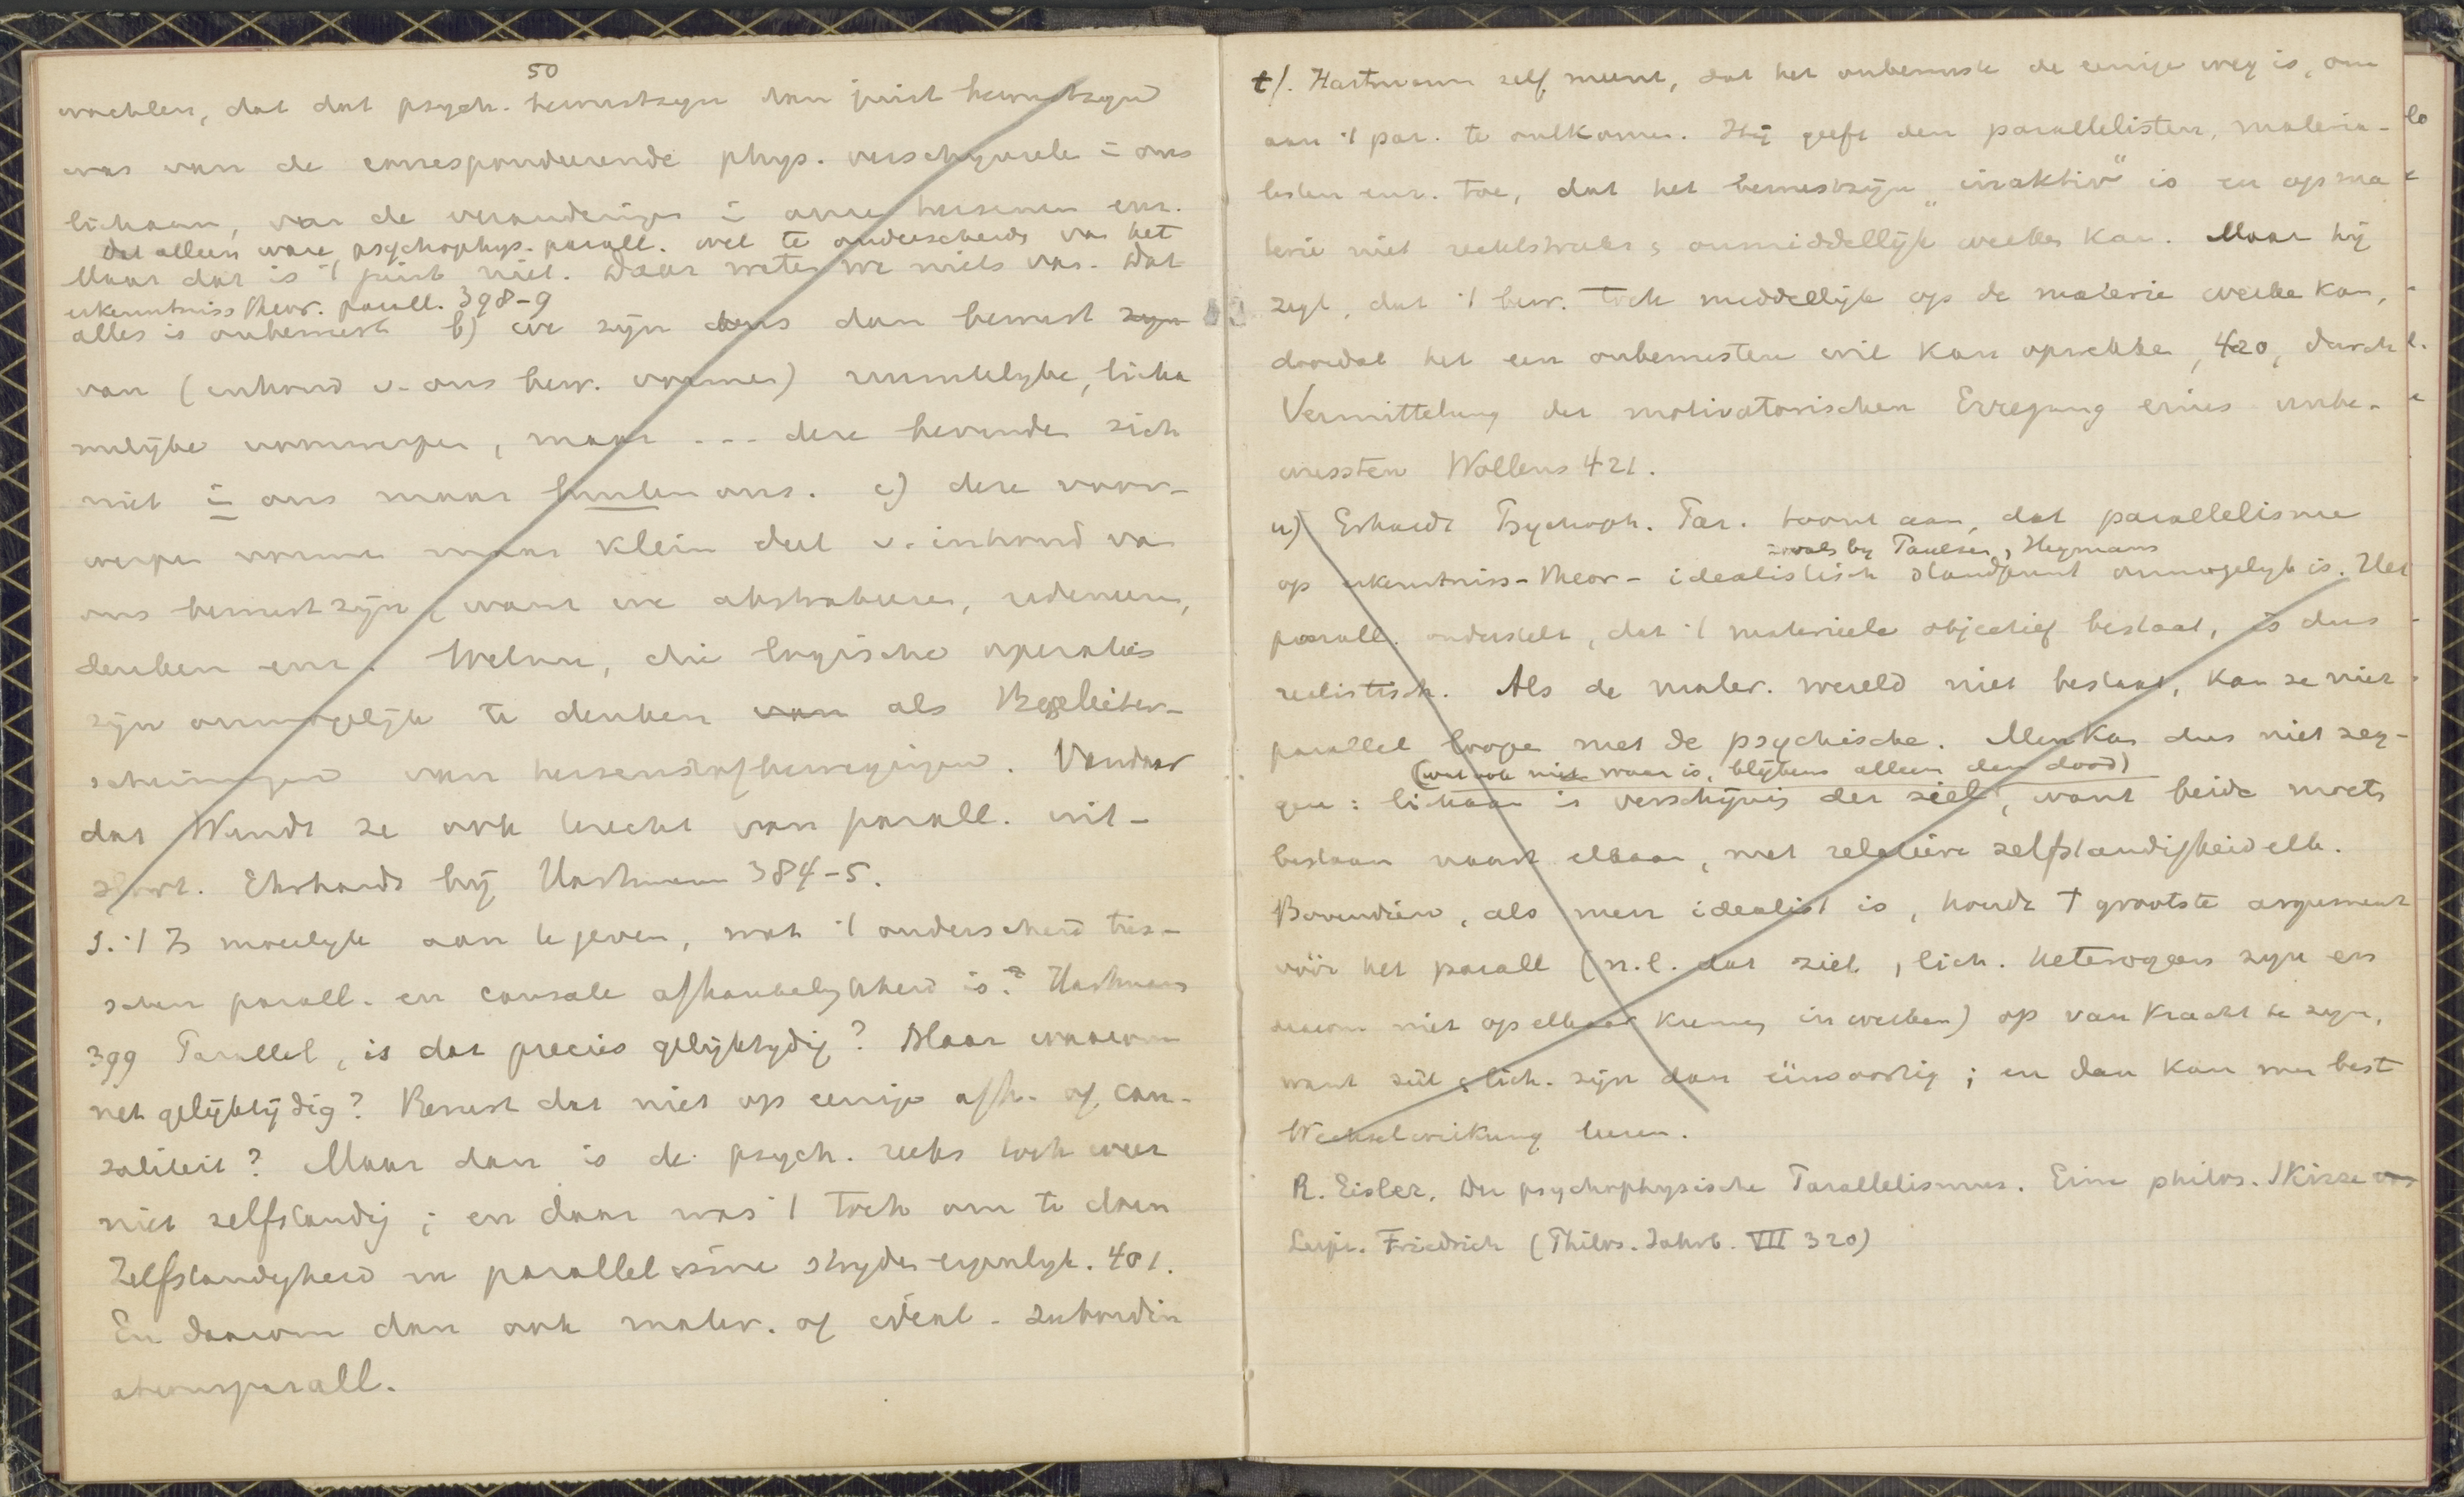 50
wachten, dat dat psych. bewustzyn dan juist bewustzyn
was van de correspondeerende phys. verschynsele i ons
lichaam, van de veranderingen i onze hersenen enz.
Dat alleen ware psychophys. parall. wel te onderscheiden van het
Maar dat is 't juist niet. Daar weten we niets van. Dat
erkenntniss theor. parall. 398-9
alles is onbewust b) we zyn dan bewust zyn
van (inhoud v. ons bew. vormen) ruimtelyke, licha
melyke voorwerpen, maar --- deze bevinden zich
niet i ons maar buiten ons. c) deze voor-
werpen vormen maar klein deel v. inhoud van
ons bewustzyn, want we abstraheeren, redeneeren,
denken enz. Welnu, die logische operaties
zyn onmogelyk te denken van als Begleiter-
scheinungen van hersenstofbewegingen. Vandaar
dat Wundt ze ook terecht van parall. uit-
sluit. Ehrhardt bij Hartmann 384-5.
s. 't Is moeilyk aan te geven, wat 't onderscheid tus-
schen parall. en causale afhankelykheid is? Hartmann
399 Parallel, is dat precies gelyktydig? Maar waarom
net gelyktydig? Berust dat niet op eenige afh. of cau-
saliteit? Maar dan is de psych. reeks toch weer
niet zelfstandig; en daar was 't toch om te doen
Zelfstandigheid en parallelisme stryden eigenlyk. 401.
En daarom dan ook mater. of ideal. subordin
ationsparall.
t/. Hartmann zelf meent, dat het onbewuste de eenige weg is, om
aan 't par. te ontkomen. Hij geeft den parallelisten, materia-
listen enz. toe, dat het bewustzijn „inaktiv" is en op ma
terie niet rechtstreeks, onmiddellijk werken kan. Maar hij
zegt, dat 't bew. toch middellijk op de materie werken kan,
doordat het een onbewusten wil kan opwekken, 420, durch
Vermittelung der motivatorischen Erregung eines unbe-
wussten Wollens 421.
u) Erhardt Psychoph. Par. toont aan, dat parallelisme
zooals by Paulsen, Heymans
op erkenntniss-theor-idealistisch standpunt onmogelyk is. Het
parall. onderstelt, dat 't materieele objectief bestaat, is dus
realistisch. Als de mater. wereld niet bestaat, kan ze niet
parallel loopen met de psychische. Men kan dus niet zeg-
(wat ook niet waar is, blijkens alleen den dood)
gen: lichaam is verschijnis der ziel, want beide moeten
bestaan naast elkaar, met relatieve zelfstandigheid elk.
Bovendien, als men idealist is, houdt 't grootste argument
vóór het parall (n.l. dat ziel, lich. heterogeen zyn en
daarom niet op elkaar kunnen inwerken) op van kracht te zyn,
want ziel, lich. zijn dan eensoortig; en dan kan men best
Wechselwirkung leeren.
R. Eisler, Der psychophysische Parallelismus. Eine philos. Skizze
Leipz. Friedrich (Philos. Jahrb. VII 320)